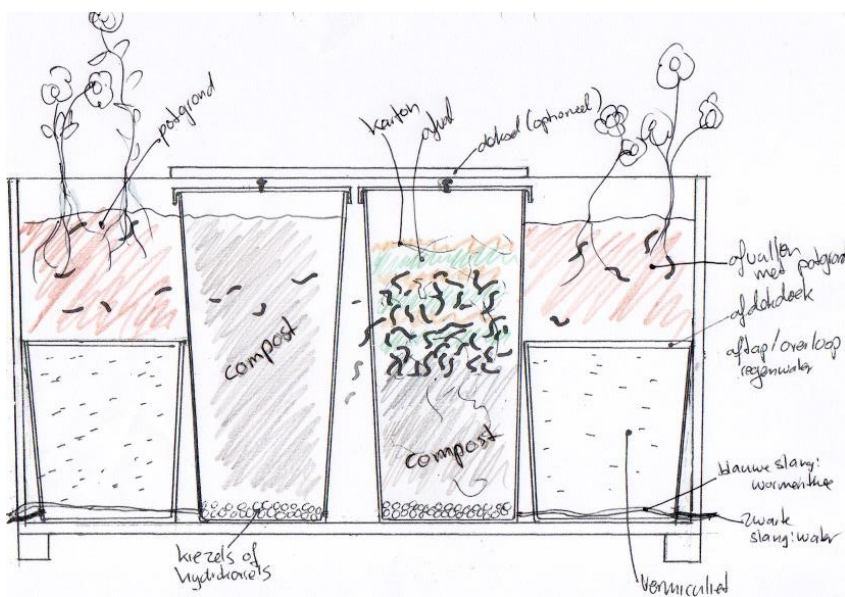 potgrond
karton
afval
deksel (optioneel)
met potgrond
afdekdoek
aftap/overloop
regenwater
compost
compost
blauwe slang:
wormenthee
zwarte
slang: water
kiezels of
hydrokorrels
vermiculiet